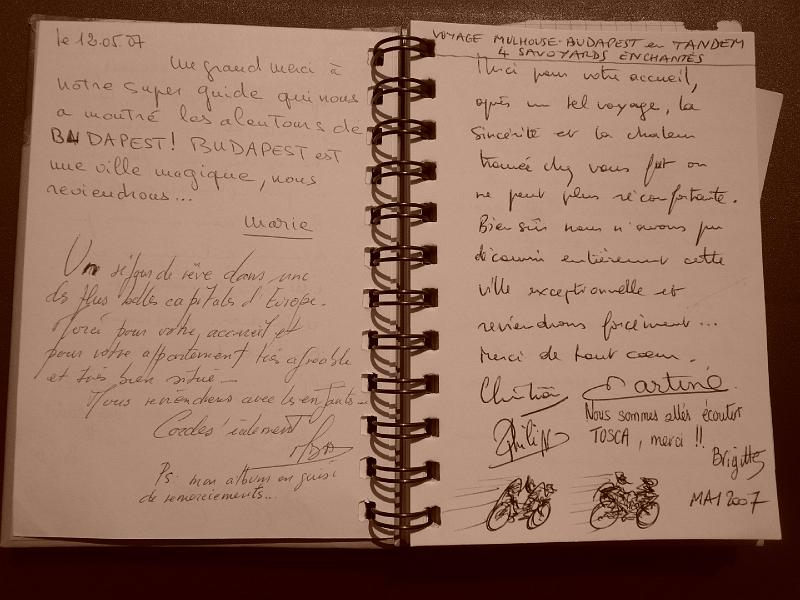 le 12.05.07
Un grand merci à
notre super guide qui nous
a montré les alentours de
BUDAPEST! BUDAPEST est
une ville magique, nous
reviendrons...
Marie
Un séjour de rêve dans une
des plus belles capitales d'Europe.
Merci pour votre accueil et
pour votre appartement très agréable
et très bien situé —
Nous reviendrons avec les enfants —
Cordialement
Ps: mon album en guise
de remerciements...
VOYAGE MULHOUSE-BUDAPEST en TANDEM
4 SAVOYARDS ENCHANTÉS
Merci pour votre accueil,
après un tel voyage, la
sincérité et la chaleur
trouvée chez vous fut on
ne peut plus réconfortante.
Bien sûr nous n'avons pu
découvrir entièrement cette
ville exceptionnelle et
reviendrons forcément...
Merci de tout coeur.
Martine
Nous sommes allés écouter
TOSCA, merci !!
Brigitte
MAI 2007